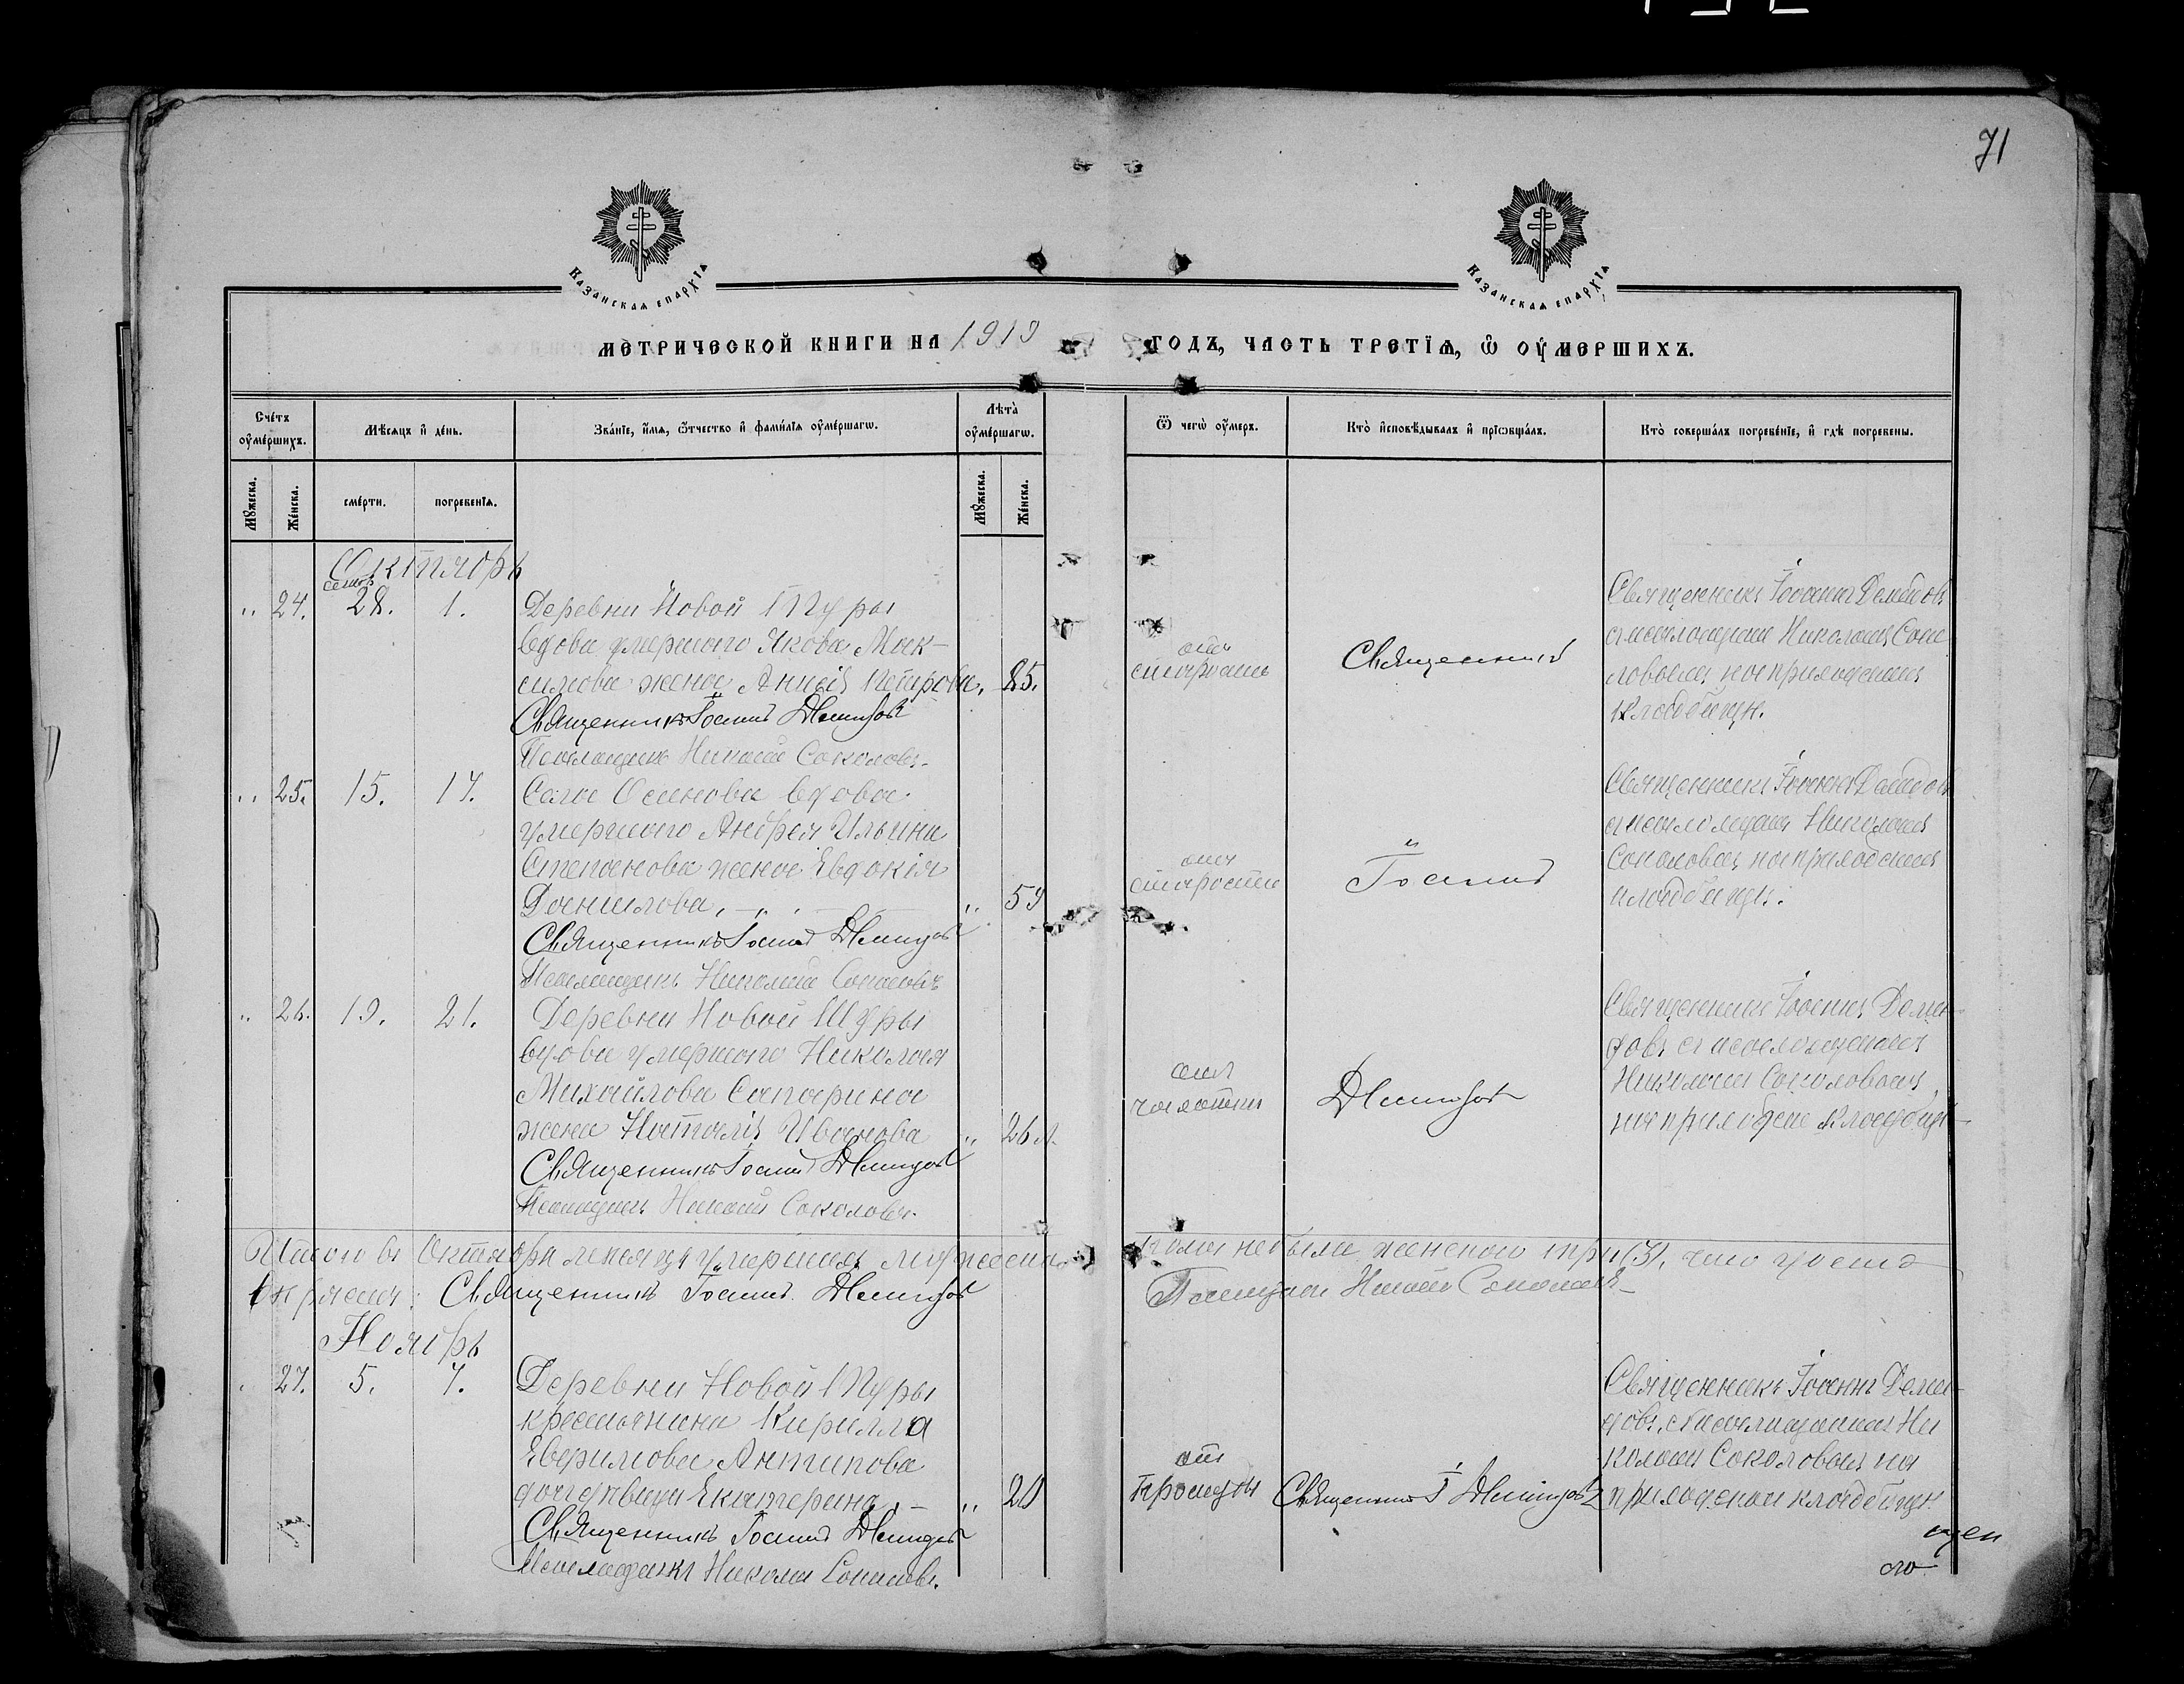 71
КАЗАНСКАЯ ЕПАРХІЯ
КАЗАНСКАЯ ЕПАРХІЯ
МЕТРИЧЕСКОЙ КНИГИ НА 1919 ГОДЪ, ЧАСТЬ ТРЕТІѦ, Ѡ ОУМЕРШИХЪ.
Счетъ оумершихъ.
Мѣсяцъ и день.
Званіе, имя, ѿчество и фамилія оумершагѡ.
Лѣта оумершагѡ.
Ѿ чегѡ оумеръ.
Кто исповѣдывалъ и пріѡбщалъ.
Кто совершалъ погребеніе, и гдѣ погребены.
Мꙋжеска.
Женска.
смерти.
погребенія.
Мꙋжеска.
Женска.
Октябрь
24. 28. 1. Деревни Новой Шуры
вдова умершаго Якова Мак-
симова жена Анна Петрова, 85.
Священникъ Іоаннъ Демидовъ
Псаломщикъ Николай Соколовъ.
отъ
старости
Священникъ
Священникъ Іоаннъ Демидовъ
съ псаломщикомъ Николаемъ Соко
ловымъ на приходскомъ
кладбищѣ.
25. 15. 17. Села Осинова вдова
умершаго Андрея Ильина
Степанова жена Евдокія
Данилова, 59
Священникъ Іоаннъ Демидовъ
Псаломщикъ Николай Соколовъ
отъ
старости
Іоаннъ
Священникъ Іоаннъ Демидовъ
съ псаломщикомъ Николаемъ
Соколовымъ на приходскомъ
кладбищѣ.
26. 19. 21. Деревни Новой Шуры
вдова умершаго Николая
Михайлова Сапарина
жена Наталія Иванова 26 л.
Священникъ Іоаннъ Демидовъ
Псаломщикъ Николай Соколовъ.
отъ
чахотки
Демидовъ
Священникъ Іоаннъ Деми-
довъ съ псаломщикомъ
Николаемъ Соколовымъ
на приходск. кладбищѣ
Итого въ Октябрѣ мѣсяцѣ умершихъ мужеска пола не было женскаго три (3), что удосто
вѣряемъ: Священникъ Іоаннъ Демидовъ
Псаломщикъ Николай Соколовъ
Ноябрь
27. 5. 7. Деревни Новой Шуры
крестьянина Кирилла
Евфимова Антипова
дочь дѣвица Екатерина, 20
Священникъ Іоаннъ Демидовъ
Псаломщикъ Николай Соколовъ.
отъ
простуды
Священникъ І Демидовъ
Священникъ Іоаннъ Деми-
довъ съ псаломщикомъ Ни
колаемъ Соколовымъ на
приходскомъ кладбищѣ